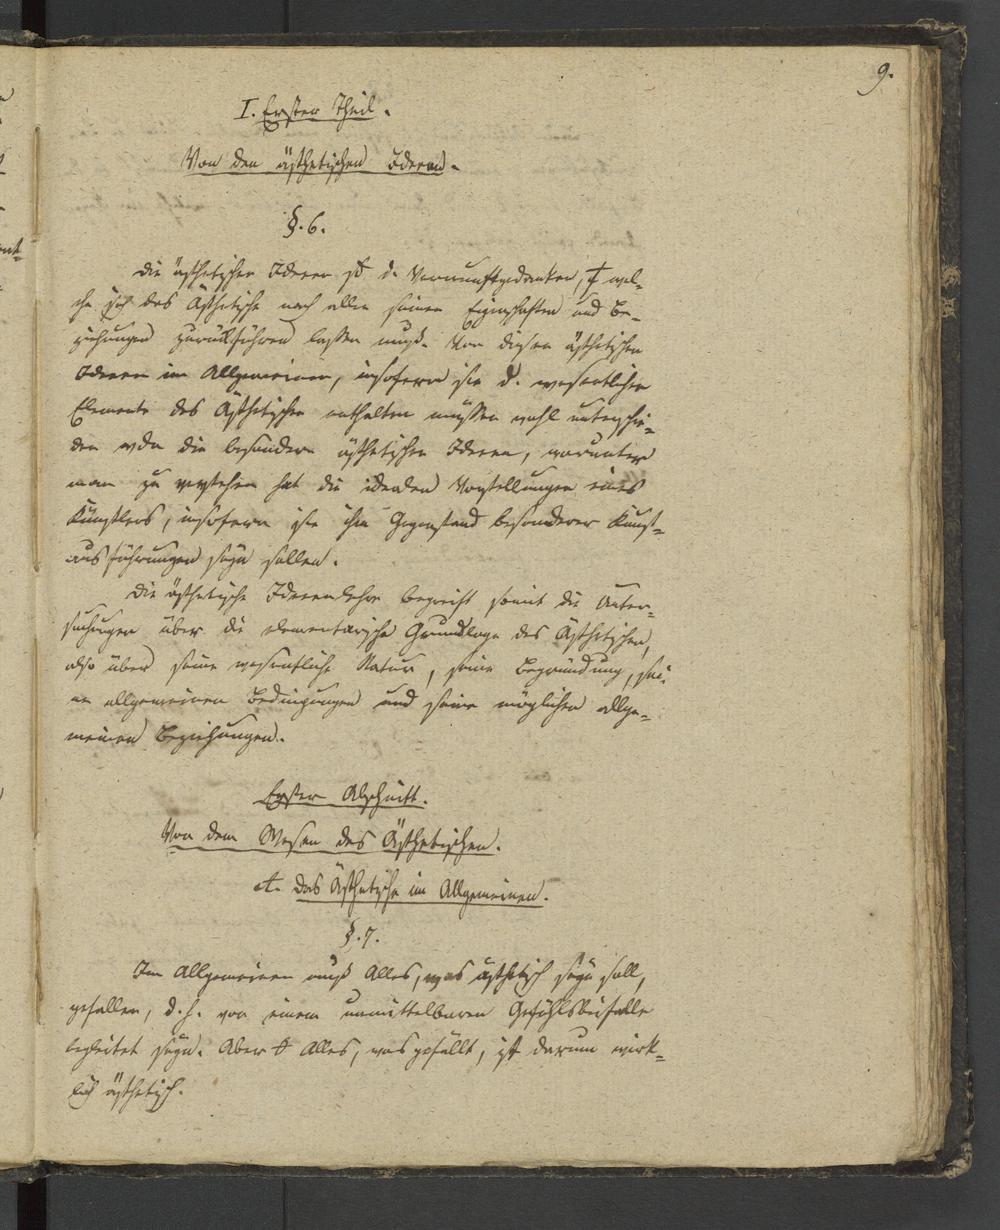 9.
I. Erster Theil.
Von den ästhetischen Ideen.
§. 6.
Die ästhetischen Ideen sd d. Vernunftgedanken, auf wel-
che sich das Ästhetische nach allen seinen Eigenschaften und Be-
ziehungen zurückführen lassen muß. Von diesen ästhetischen
Ideen im Allgemeinen, insofern sie d. wesentlichen
Elemente des Ästhetischen enthalten müssen wohl unterschie-
den wdn die besondern ästhetischen Ideen, worunter
man zu verstehen hat die idealen Vorstellungen eines
Künstlers, insofern sie ihm Gegenstand besonderer Kunst-
ausführungen seyn sollen.
Die ästhetische Ideenlehre begreift somit die Unter-
suchungen über die elementarische Grundlage des Ästhetischen,
also über seine wesentliche Natur, seine Begründung, sei-
ne allgemeinen Bedingungen und seine möglichen allge-
meinen Beziehungen.
Erster Abschnitt.
Von dem Wesen des Ästhetischen.
A. Das Ästhetische im Allgemeinen.
§. 7.
Im Allgemeinen muß Alles, was ästhetisch seyn soll,
gefallen, d. h. von einem unmittelbaren Gefühlsbeifalle
begleitet seyn. Aber Alles, was gefällt, ist darum wirk-
lich ästhetisch.